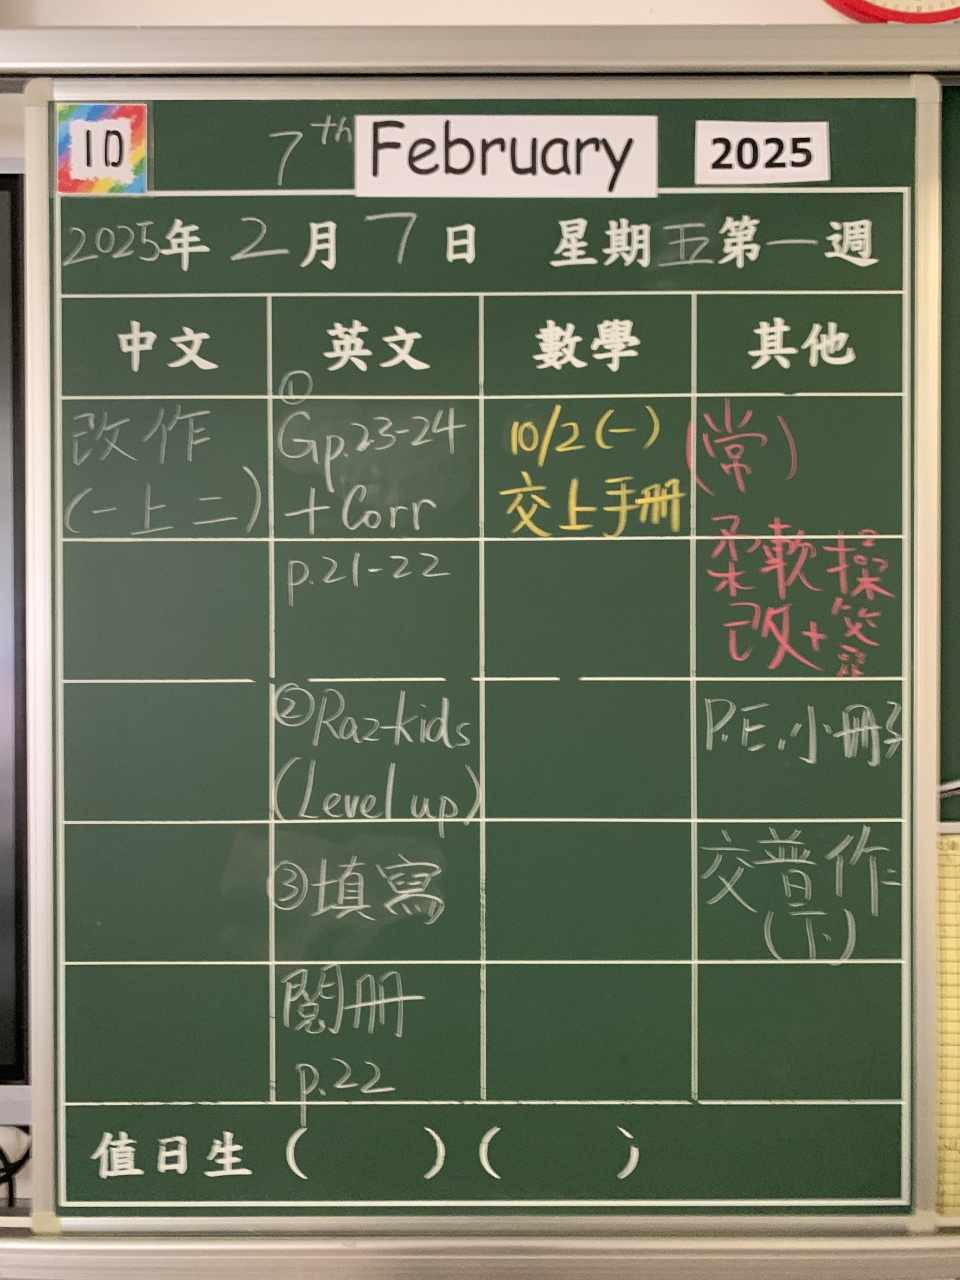 1D
7th February 2025
2025年 2月 7日 星期五 第一週
中文 英文 數學 其他
改作
(一上二)
①
Gp.23-24
+Corr
p.21-22
②Raz-kids
(Level up)
③填寫
閱冊
p.22
10/2(一)
交上手冊
(常)
柔軟操
改+簽
P.E.小冊子
交普作
(下)
值日生 ( ) ( )